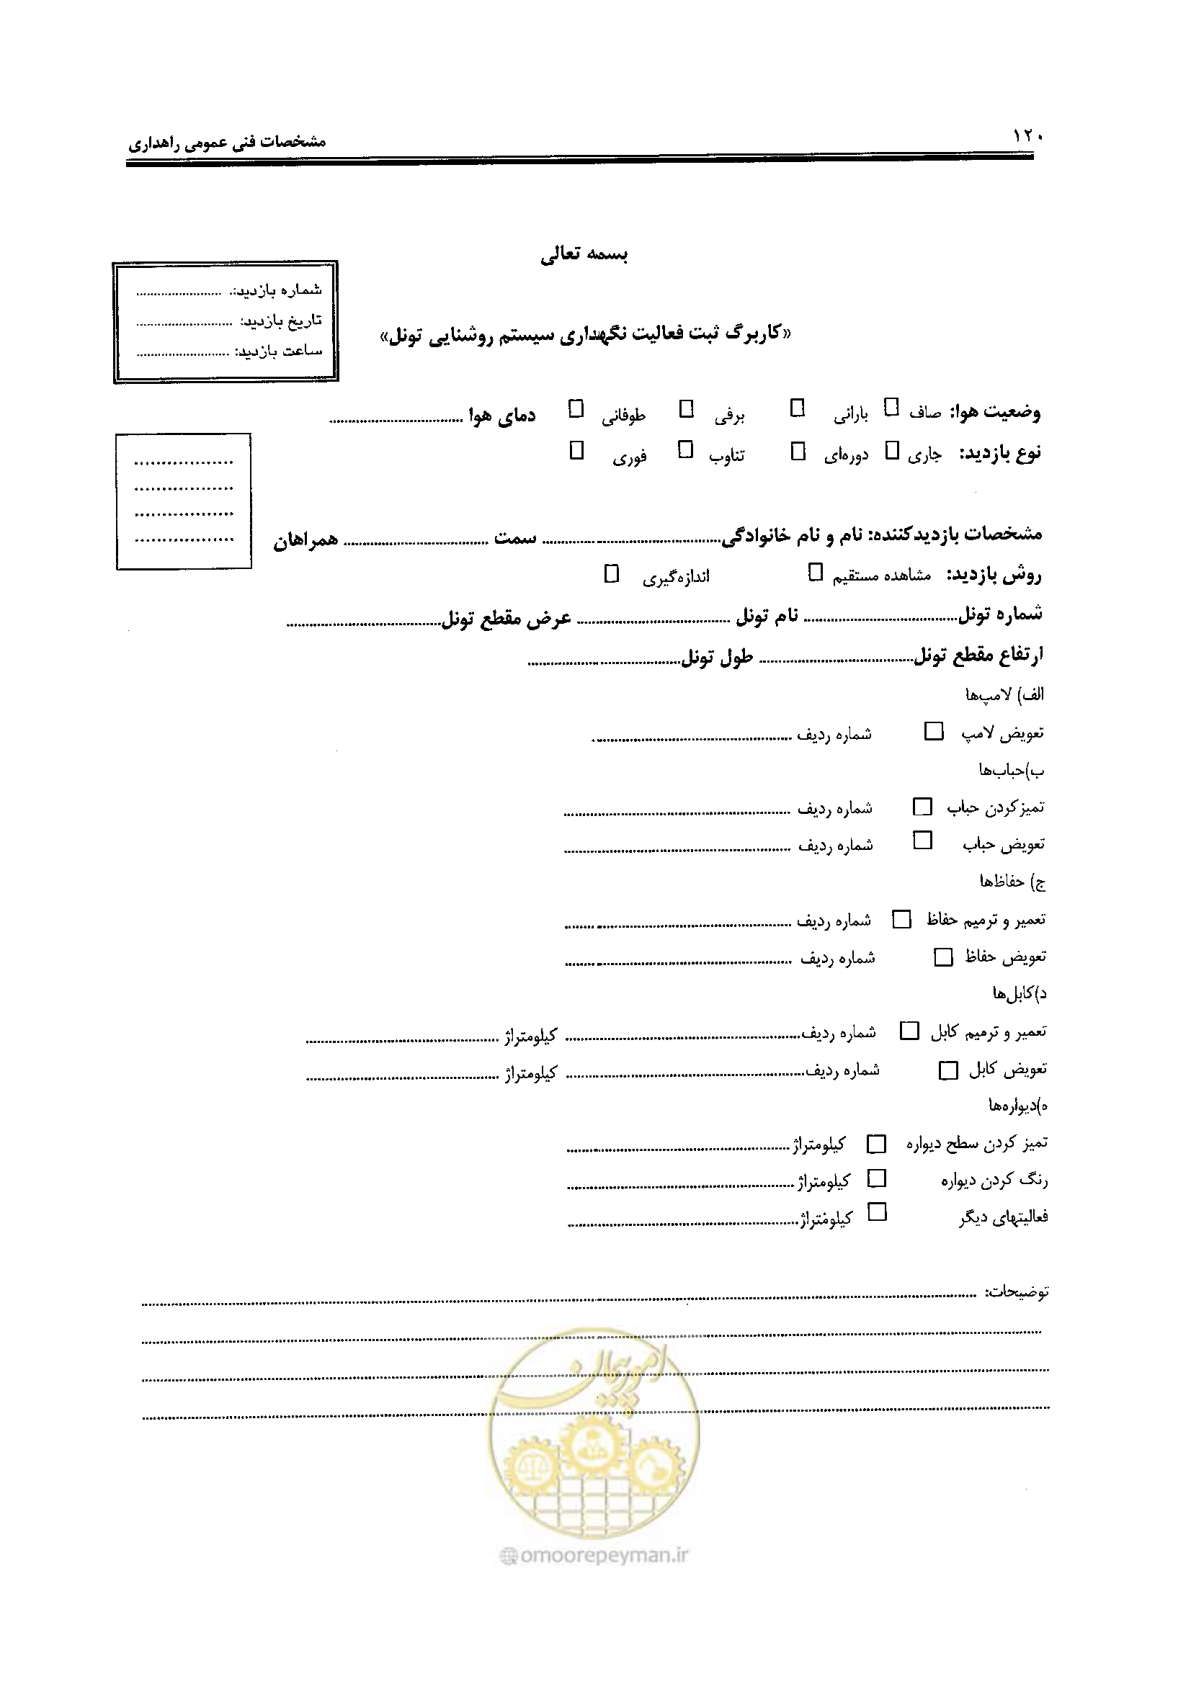 ۱۲۰
مشخصات فنی عمومی راهداری
بسمه تعالی
شماره بازدید: ........................
تاریخ بازدید: ........................
ساعت بازدید: ........................
«کاربرگ ثبت فعالیت نگهداری سیستم روشنایی تونل»
وضعیت هوا: صاف □ بارانی □ برفی □ طوفانی □ دمای هوا ........................
نوع بازدید: جاری □ دوره‌ای □ تناوب □ فوری □
........................
........................
........................
........................
مشخصات بازدیدکننده: نام و نام خانوادگی........................ سمت ........................ همراهان
روش بازدید: مشاهده مستقیم □ اندازه‌گیری □
شماره تونل........................ نام تونل ........................ عرض مقطع تونل........................
ارتفاع مقطع تونل........................ طول تونل........................
الف) لامپ‌ها
تعویض لامپ □ شماره ردیف ........................
ب)حباب‌ها
تمیزکردن حباب □ شماره ردیف ........................
تعویض حباب □ شماره ردیف ........................
ج) حفاظ‌ها
تعمیر و ترمیم حفاظ □ شماره ردیف ........................
تعویض حفاظ □ شماره ردیف ........................
د)کابل‌ها
تعمیر و ترمیم کابل □ شماره ردیف........................ کیلومتراژ ........................
تعویض کابل □ شماره ردیف........................ کیلومتراژ ........................
ه)دیواره‌ها
تمیز کردن سطح دیواره □ کیلومتراژ........................
رنگ کردن دیواره □ کیلومتراژ........................
فعالیتهای دیگر □ کیلومتراژ........................
توضیحات: ........................
........................
........................
........................
امور پیمان
@omoorepeyman.ir